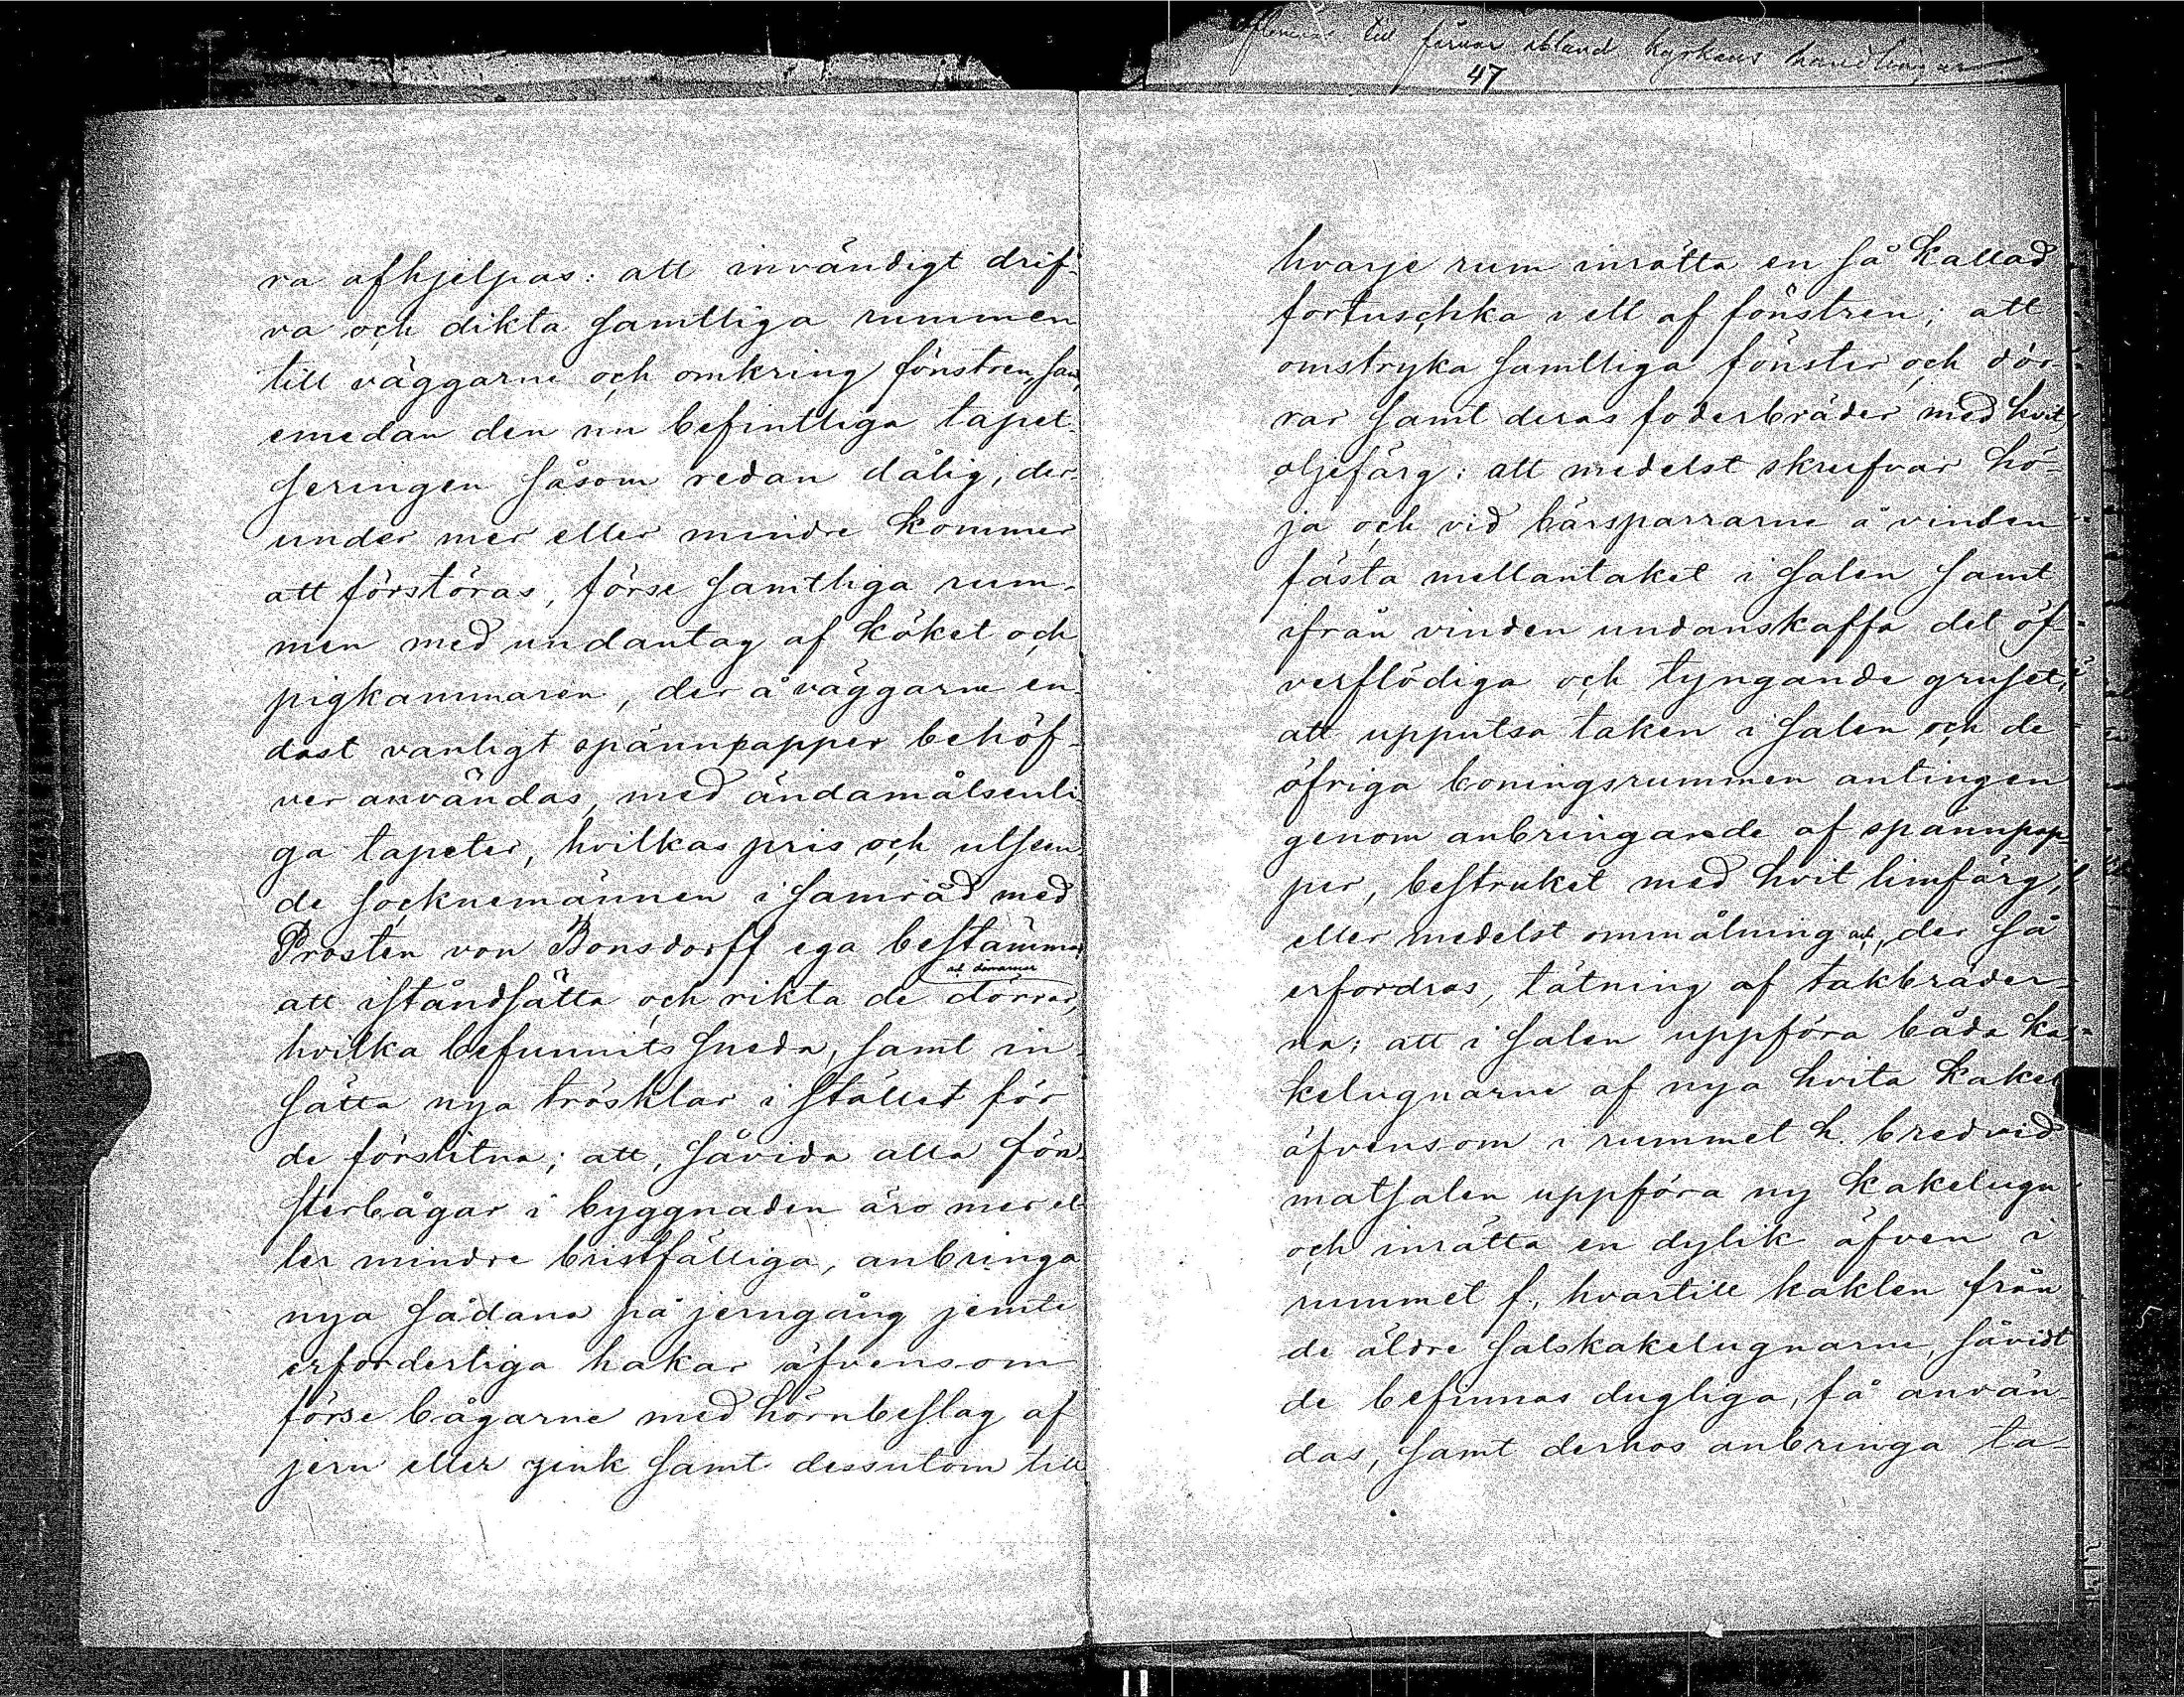 ra afhjelpas: att invändigt drif-
va och dikta samtliga rummen
till väggarne och omkring fönstren,
emedan den nu befintliga tapet-
seringen såsom redan dålig, der-
under mer eller mindre kommer
att förstöras, förse samtliga rum-
men med undantag af köket och
pigkammaren, der å väggarne en-
dast vanligt spännpapper behöf-
ver användas, med ändamålsenli-
ga tapeter, hvilkas pris och utseen-
de socknemännen i samråd med
Prosten von Bonsdorff ega bestämma;
att iståndsätta och rikta de dörrar,
hvilka befunnits sneda, samt in-
sätta nya trösklar i stället för
de förslitna; att, såvida alla fön-
sterbågar i byggnaden äro mer el-
ler mindre bristfälliga, anbringa
nya sådana på jerngång jemte
erforderliga hakar äfvensom
förse bågarne med hörnbeslag af
jern eller zink samt dessutom till
till förvar ibland kyrkans handlingar
47
hvarje rum inrätta en så kallad
fortuschka i ett af fönstren; att
omstryka samtliga fönster och dör-
rar samt deras foderbräder med hvit
oljefärg: att medelst skrufvar hö-
ja och vid bärsparrarne å vinden
fästa mellantaket i salen samt
ifrån vinden undanskaffa det öf-
verflödiga och tyngande gruset;
att upputsa taken i salen och de
öfriga boningsrummen antingen
genom anbringande af spännpap-
per, bestruket med hvit limfärg,
eller medelst ommålning och, der så
erfordras, tätning af takbräder-
na; att i salen uppföra båda ka-
kelugnarne af nya hvita kakel
äfvensom i rummet h. bredvid
matsalen uppföra ny kakelugn
och inrätta en dylik äfven i
rummet f., hvartill kaklen från
de äldre salskakelugnarne, såvidt
de befinnas dugliga, få använ-
das, samt derhos anbringa ta-